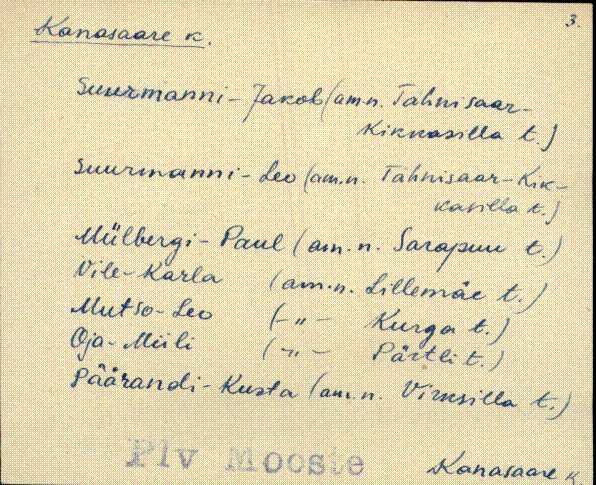 3.
Kanasaare k.
Suurmanni - Jakob (am.n. Tahnisaar-
Kikkasilla t.)
Suurmanni - Leo (am.n. Tahnisaar-Kik-
kasilla t.)
Mülbergi - Paul (am.n. Sarapuu t.)
Vile-Karla (am.n. Lillemäe t.)
Mutso-Leo (-„- Kurga t.)
Oja-Miili (-„- Pärtli t.)
Päärandi-Kusta (am.n. Virksilla t.)
Plv Mooste
Kanasaare k.